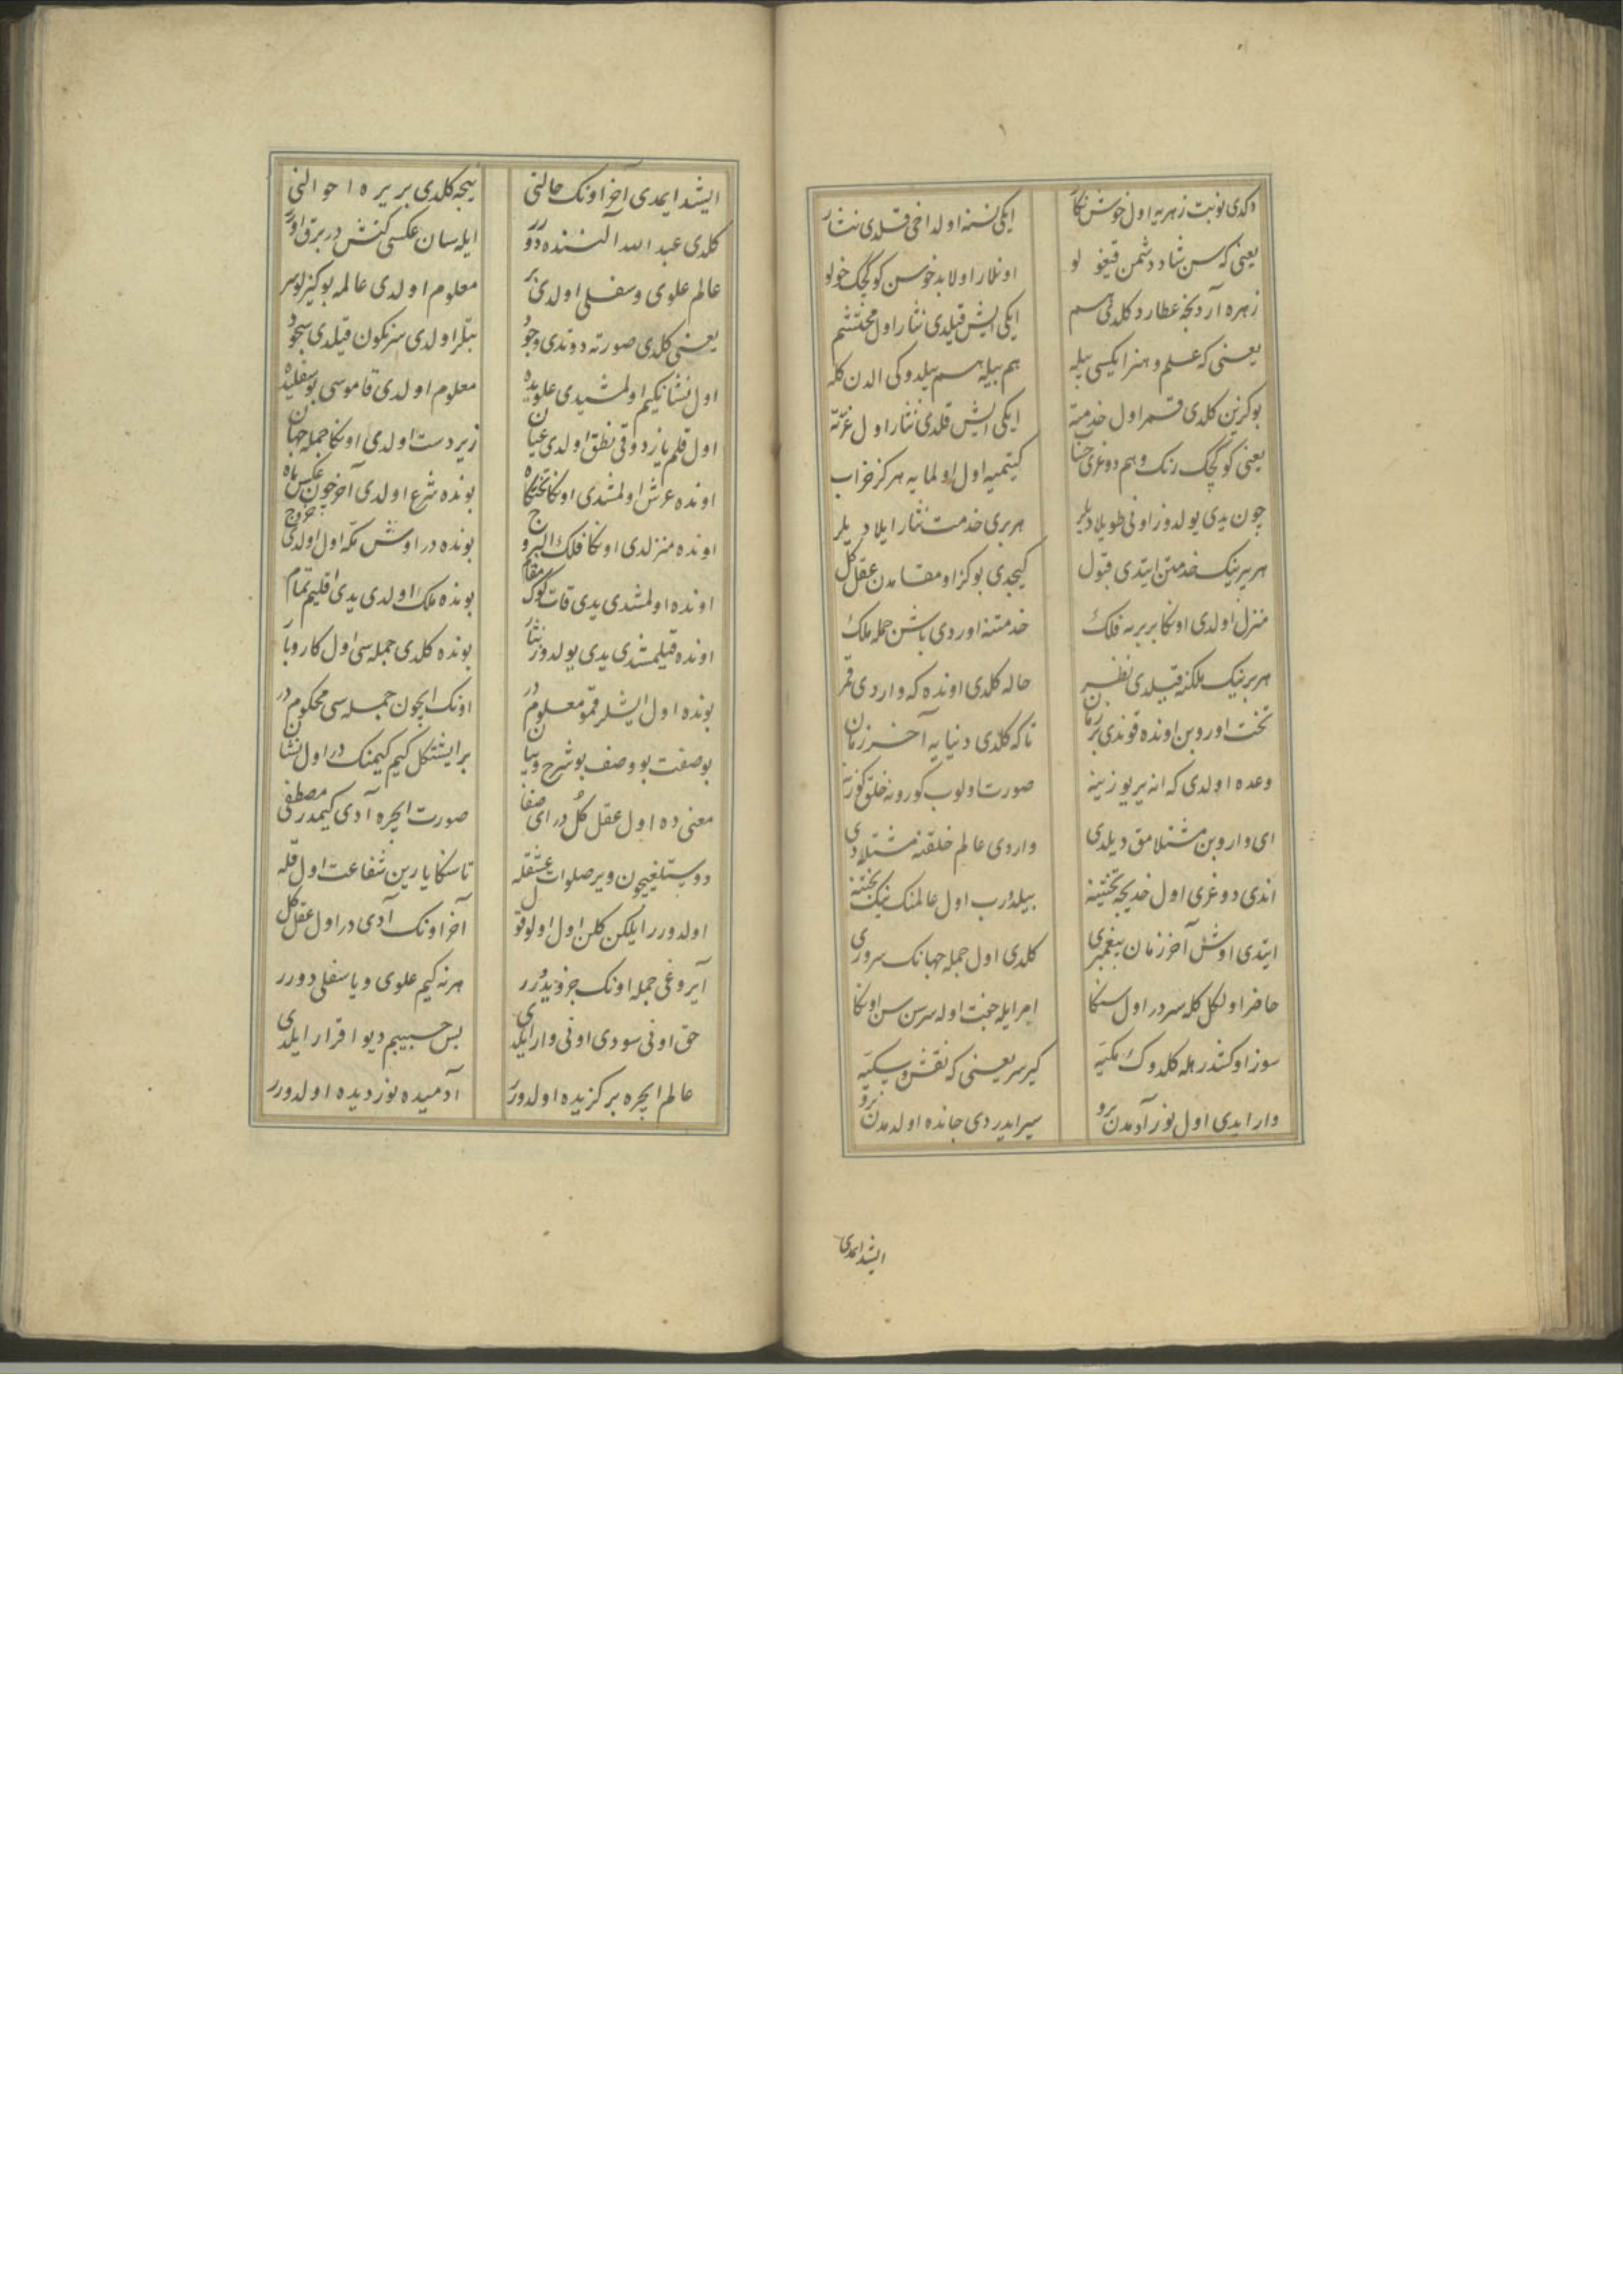 دکدی نوبت زهریه اول خوش نکار ایکی نسنه اولداخی قلدی نثار
یعنی که سن شاد دشمن قیغو لو اونلار اولا بدخوسن کوکچک خولو
زهره آردنجه عطارد کلدی هم ایکی ایش قیلدی نثار اول محتشم
یعنی که علم و هنر ایکسی بیله هم بیله هم بیلدوکی الدن کله
بوکزین کلدی قمر اول خدمته ایکی ایش قلدی نثار اول عزته
یعنی کوکچک رنک و هم دوغری حساب کیتمیه اول اولمایه هرکز خراب
چون یدی یولدوز اونی طویلادیلر هر بری خدمت نثار ایلادیلر
هر بیرینک خدمتن ایتدی قبول کیجدی بوکز او مقامدن عقل کل
منزل اولدی اونکا بربره فلک خدمتنه اوردی باشن جمله ملک
هر برینک ملکنه قیلدی نظر حاله کلدی اونده که واردی قمر
تخت اوروبن اونده قوندی بر زمان تا که کلدی دنیایه آخر زمان
وعده اولدی که انه یر یوزینه صورت اولوب کورونه خلق کوزینه
ای واروبن مشتلامق دیلدی واردی عالم خلقنه مشتلادی
اندی دوغری اول خدیجه تختینه بیلدورب اول عالمنک نیک بختنه
ایتدی اوش آخر زمان پیغمبری کلدی اول جمله جهانک سروری
حاضر اولکل کله سردر اول سنکا امرایله جفت اوله سرسن سن اونکا
سوز اوکشدر هله کلدوک مکتیه کیرسر یعنی که نقش و سکتیه
وار ایدی اول نور آدمدن برو سیر ایدردی جانده اولدمدن برو
ایشد ایمدی
ایشد ایمدی آخر اونک حالنی نیجه کلدی بر یره احوالنی
کلدی عبد الله آلننده دورر ایله سان عکسی کنش در برق اورر
عالم علوی و سفلی اولدی بر معلوم اولدی عالمه بو کیزلو سر
یعنی کلدی صورته دوتدی وجود بتلر اولدی سرنکون قیلدی سجود
اول نشانکیم اولمشیدی علویده معلوم اولدی قاموسی بو سفلیده
اول قلم یازدوقی نطق اولدی عیان زیردست اولدی اونکا جمله جهان
اونده عرش اولمشدی اونکا تختکاه بونده شرع اولدی آخر چون عکس ماه
اونده منزلدی اونکا فلک البروج بونده در اوش مکه اول اولدی خروج
اونده اولمشدی یدی قات کوک مقام بونده ملک اولدی یدی اقلیم تمام
اونده قیلمشدی یدی یولدوز نثار بونده کلدی جمله سی اول کاروبار
بونده اول ایشلر قمو معلوم در اونک ایچون جمله سی محکوم در
بو صفت بو وصف بو شرح و بیان بر ایشتکل کیم کیمنک در اول نشان
معنی ده اول عقل کل در ای صفا صورت ایچره آدی کیمدر مصطفی
دوستلغیچون ویر صلوات عشقله تا سنکا یارین شفاعت اول قله
اولدورر ایلکن کلن اول اولوقول آخر اونک آدی در اول عقل کل
آیروغی جمله اونک جزویدورر هرنه کیم علوی و یا سفلی دورر
حق اونی سودی اونی وار ایلدی بس حبیبم دیو اقرار ایلدی
عالم ایچره برکزیده اولدورر آدمیده نور دیده اولدورر